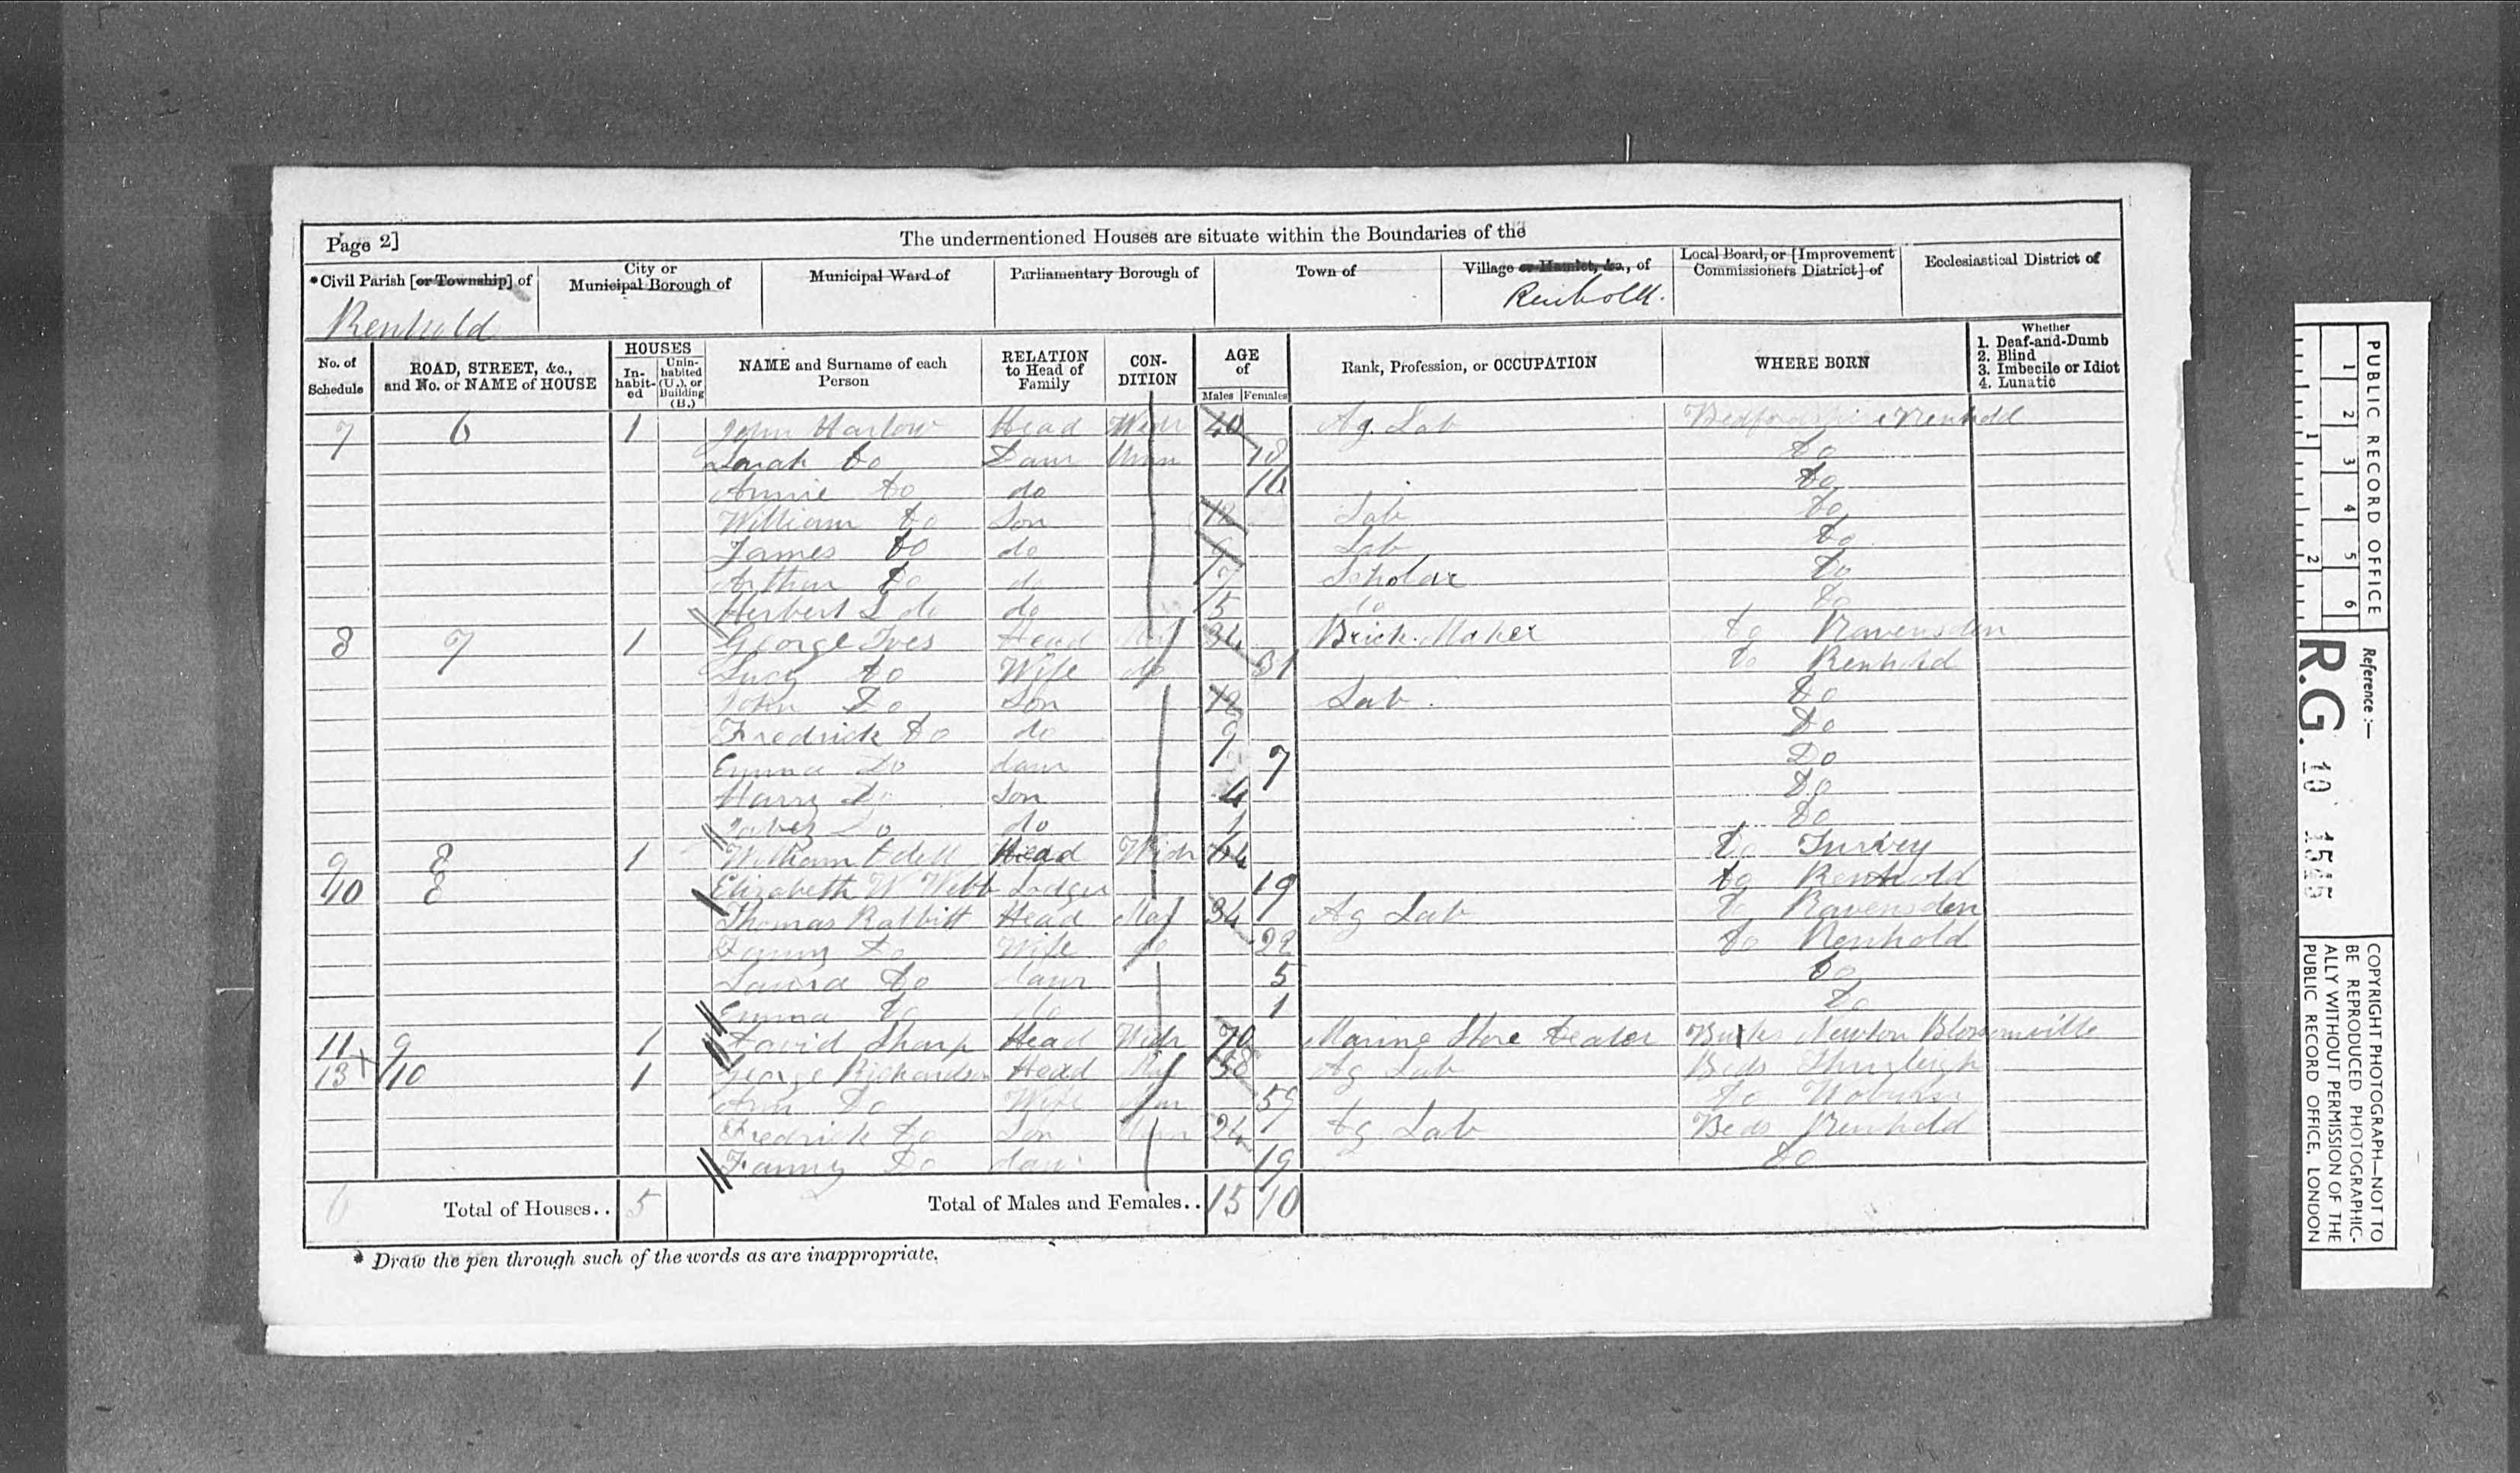 Page 2]
The undermentioned Houses are situate within the Boundaries of the
*Civil Parish [or Township] of
City or Municipal Borough of
Municipal Ward of
Parliamentary Borough of
Town of
Village or Hamlet, &c., of
Local Board, or [Improvement Commissioners District] of
Ecclesiastical District of
Renhold
Renhold.
No. of Schedule
ROAD, STREET, &c., and No. or NAME of HOUSE
HOUSES
In-habit-ed
Unin-habited (U.), or Building (B.)
NAME and Surname of each Person
RELATION to Head of Family
CON-DITION
AGE of
Males Females
Rank, Profession, or OCCUPATION
WHERE BORN
Whether
1. Deaf-and-Dumb
2. Blind
3. Imbecile or Idiot
4. Lunatic
7 6 1 John Harlow Head Widr 40 Ag. Lab Bedfordshire Renhold
Sarah Do Daur Unm 18 Do
Annie Do do Do
William Do Son 12 Lab Do
James Do do 9 Lab Do
Arthur Do do 7 Scholar Do
Herbert do do 5 do Do
8 7 1 George Ives Head Mar 34 Brick Maker Do Ravensden
Lucy Do Wife do 31 Do Renhold
John Do Son Lab. Do
Fredrick Do do 9 Do
Emma Do daur 7 Do
Harry Do Son 4 Do
Jabez Do do 1 Do
9 8 1 William Odell Head Widr Do Turvey
10 8 Elizabeth W Webb Lodger 19 Do Renhold
Thomas Rabbitt Head Mar 34 Ag Lab Do Ravensden
Fanny Do Wife do 22 Do Renhold
Laura Do daur 5 Do
Emma Do do 1 Do
11 9 1 David Sharp Head Widr 70 Marine Store Dealer Bucks Newton Blossomville
13 10 1 George Richardson Head Mar 58 Ag Lab Beds Thurleigh
Ann Do Wife 59 Do Woburn
Fredrick Do Son Unm 24 Ag Lab Beds Renhold
Fanny Do daur 19 Do
6 Total of Houses.. 5
Total of Males and Females.. 15 10
* Draw the pen through such of the words as are inappropriate.
PUBLIC RECORD OFFICE
1 2 3 4 5 6
1 2
Reference :—
R.G. 10 1545
COPYRIGHT PHOTOGRAPH—NOT TO
BE REPRODUCED PHOTOGRAPHIC-
ALLY WITHOUT PERMISSION OF THE
PUBLIC RECORD OFFICE, LONDON